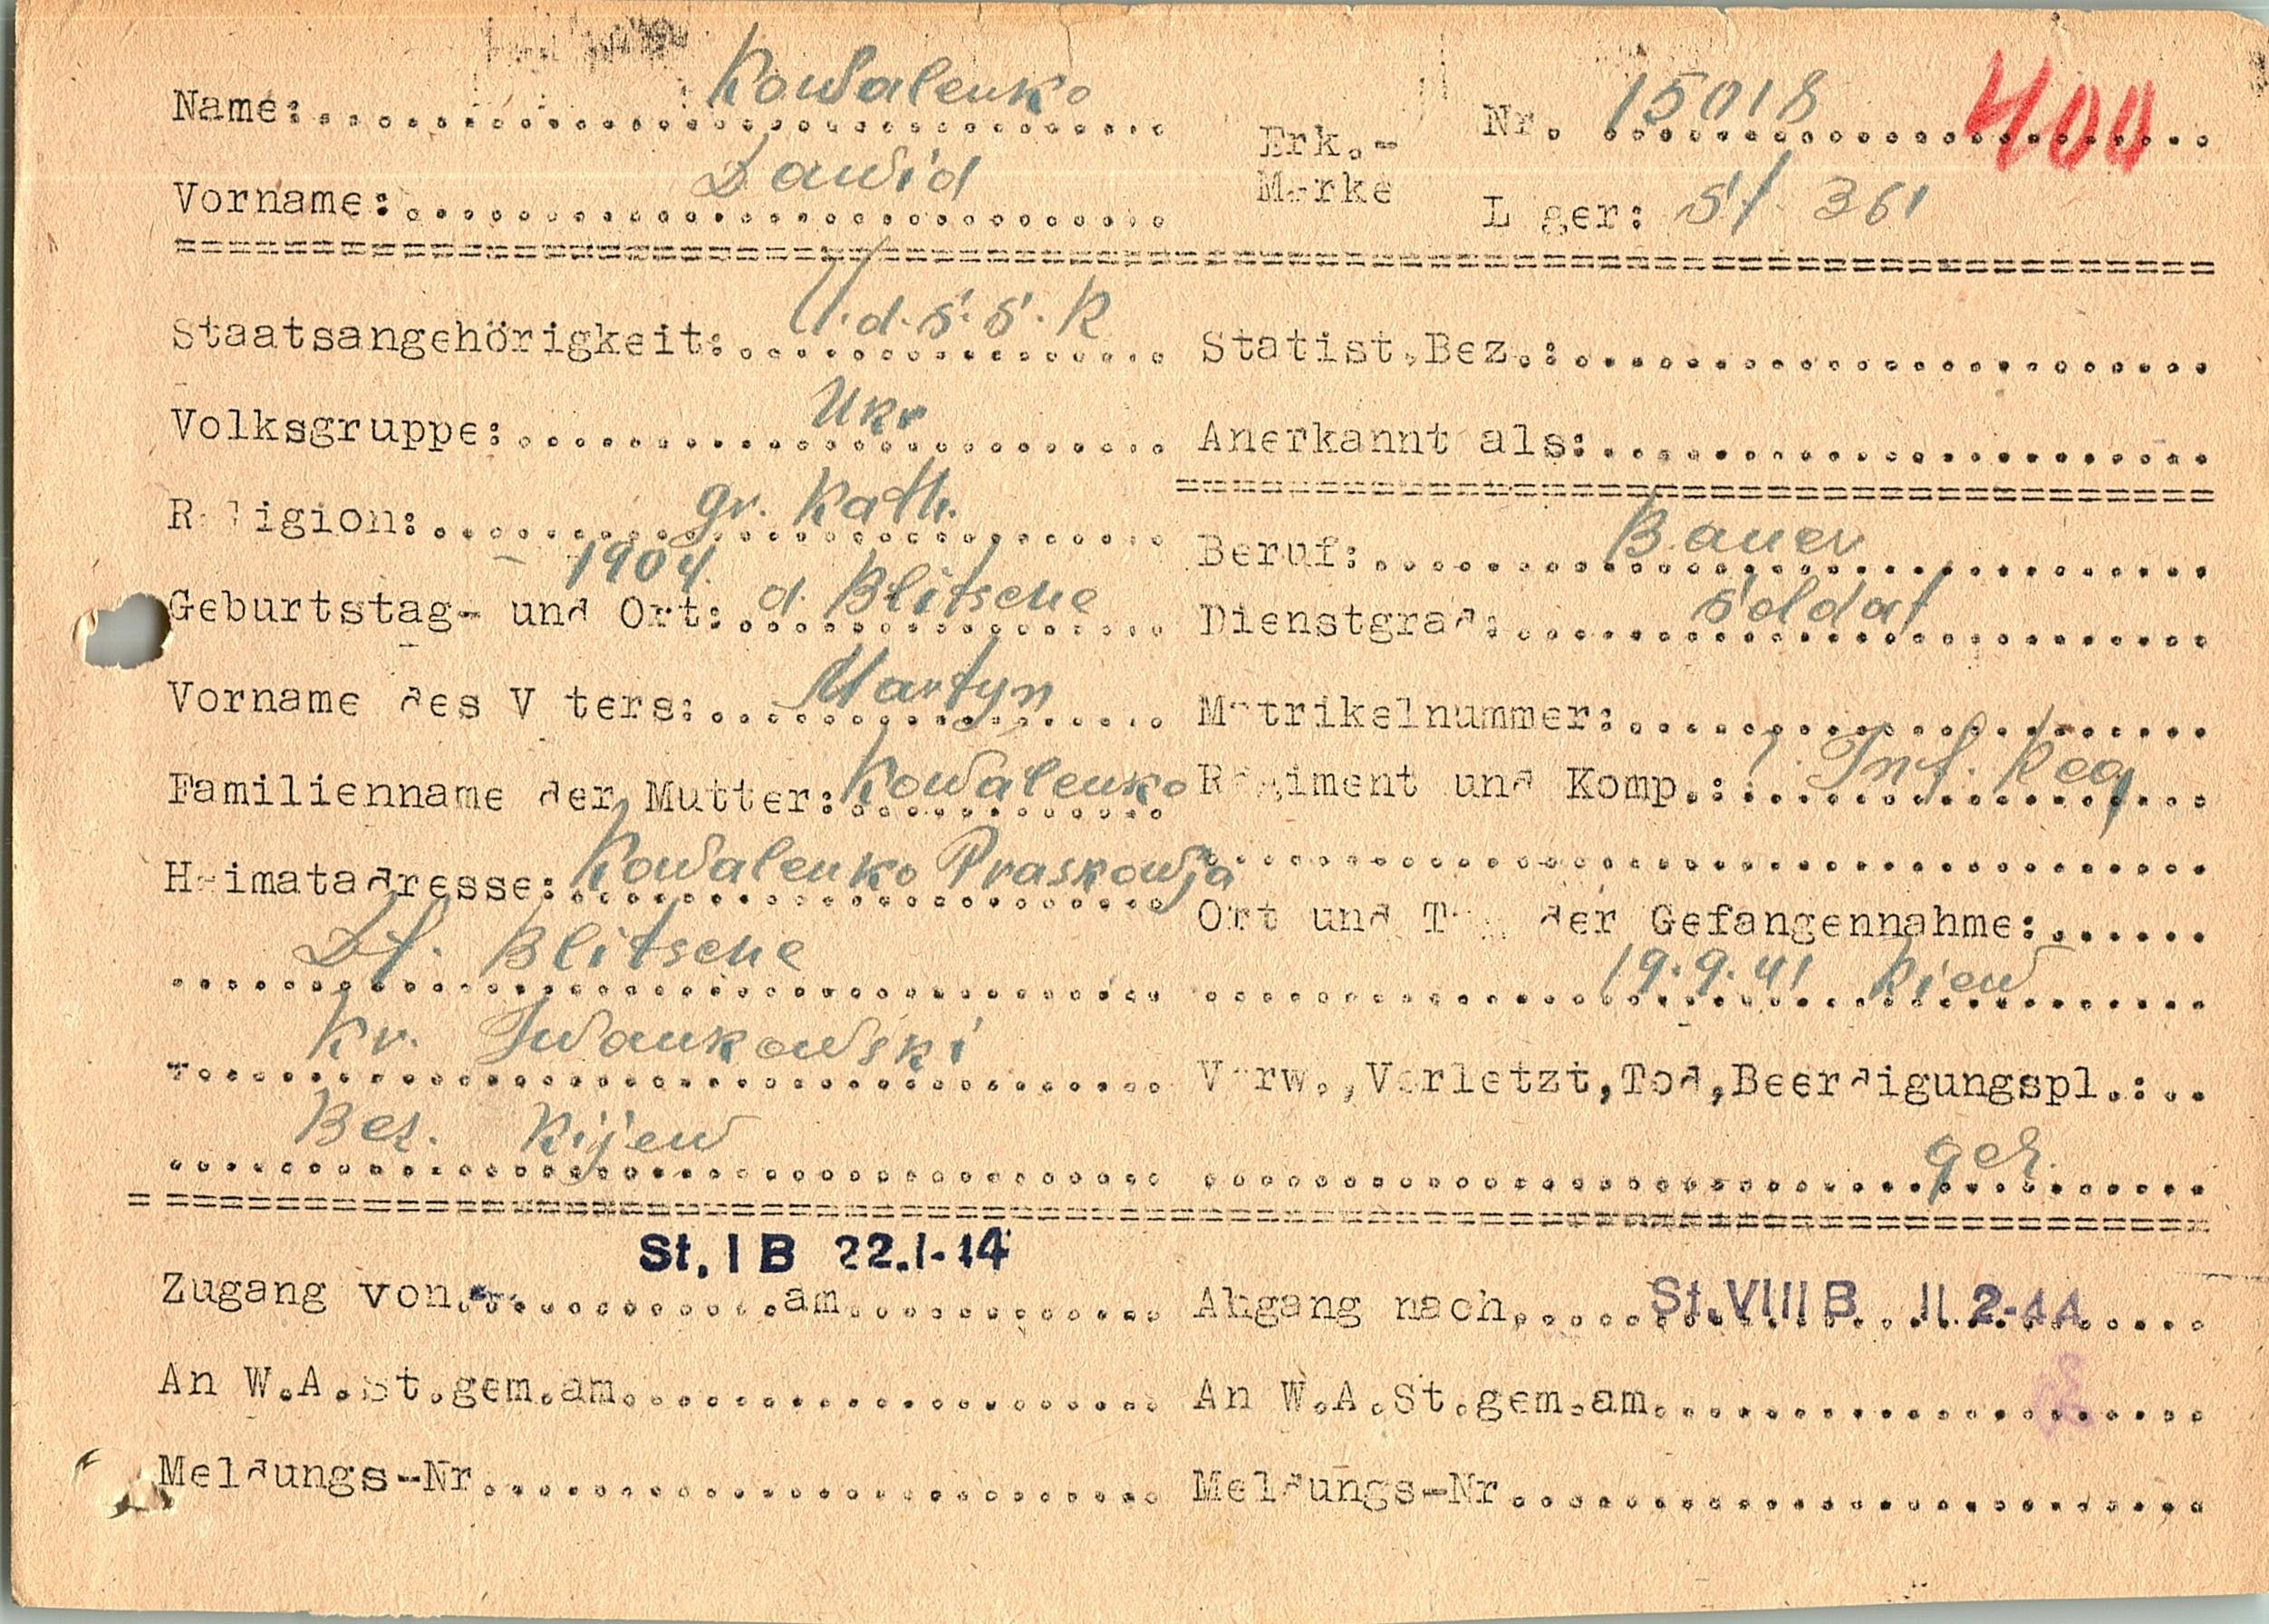 Name: Kowalenko
Erk.-Marke Nr. 15018 400
Vorname: Dawid
Lager: St 361
Staatsangehörigkeit: U.d.S.S.R
Statist.Bez.:
Volksgruppe: Ukr
Anerkannt als:
Religion: gr. Kath.
Beruf: Bauer
Geburtstag- und Ort: 1904. d. Blitsche
Dienstgrad: Soldat
Vorname des Vaters: Martyn
Matrikelnummer:
Familienname der Mutter: Kowalenko
Regiment und Komp.: ?. Inf. Reg
Heimatadresse: Kowalenko Praskowja
Df. Blitsche
Ort und Tag der Gefangennahme:
19.9.41 Kiew
Kr. Iwankowski
Verw.,Verletzt,Tod,Beerdigungspl.:
Bez. Kijew
ges.
St. I B 22.1-44
Zugang von am
Abgang nach St. VIII B 11.2-44
An W.A.St.gem.am
An W.A.St.gem.am
Meldungs-Nr
Meldungs-Nr